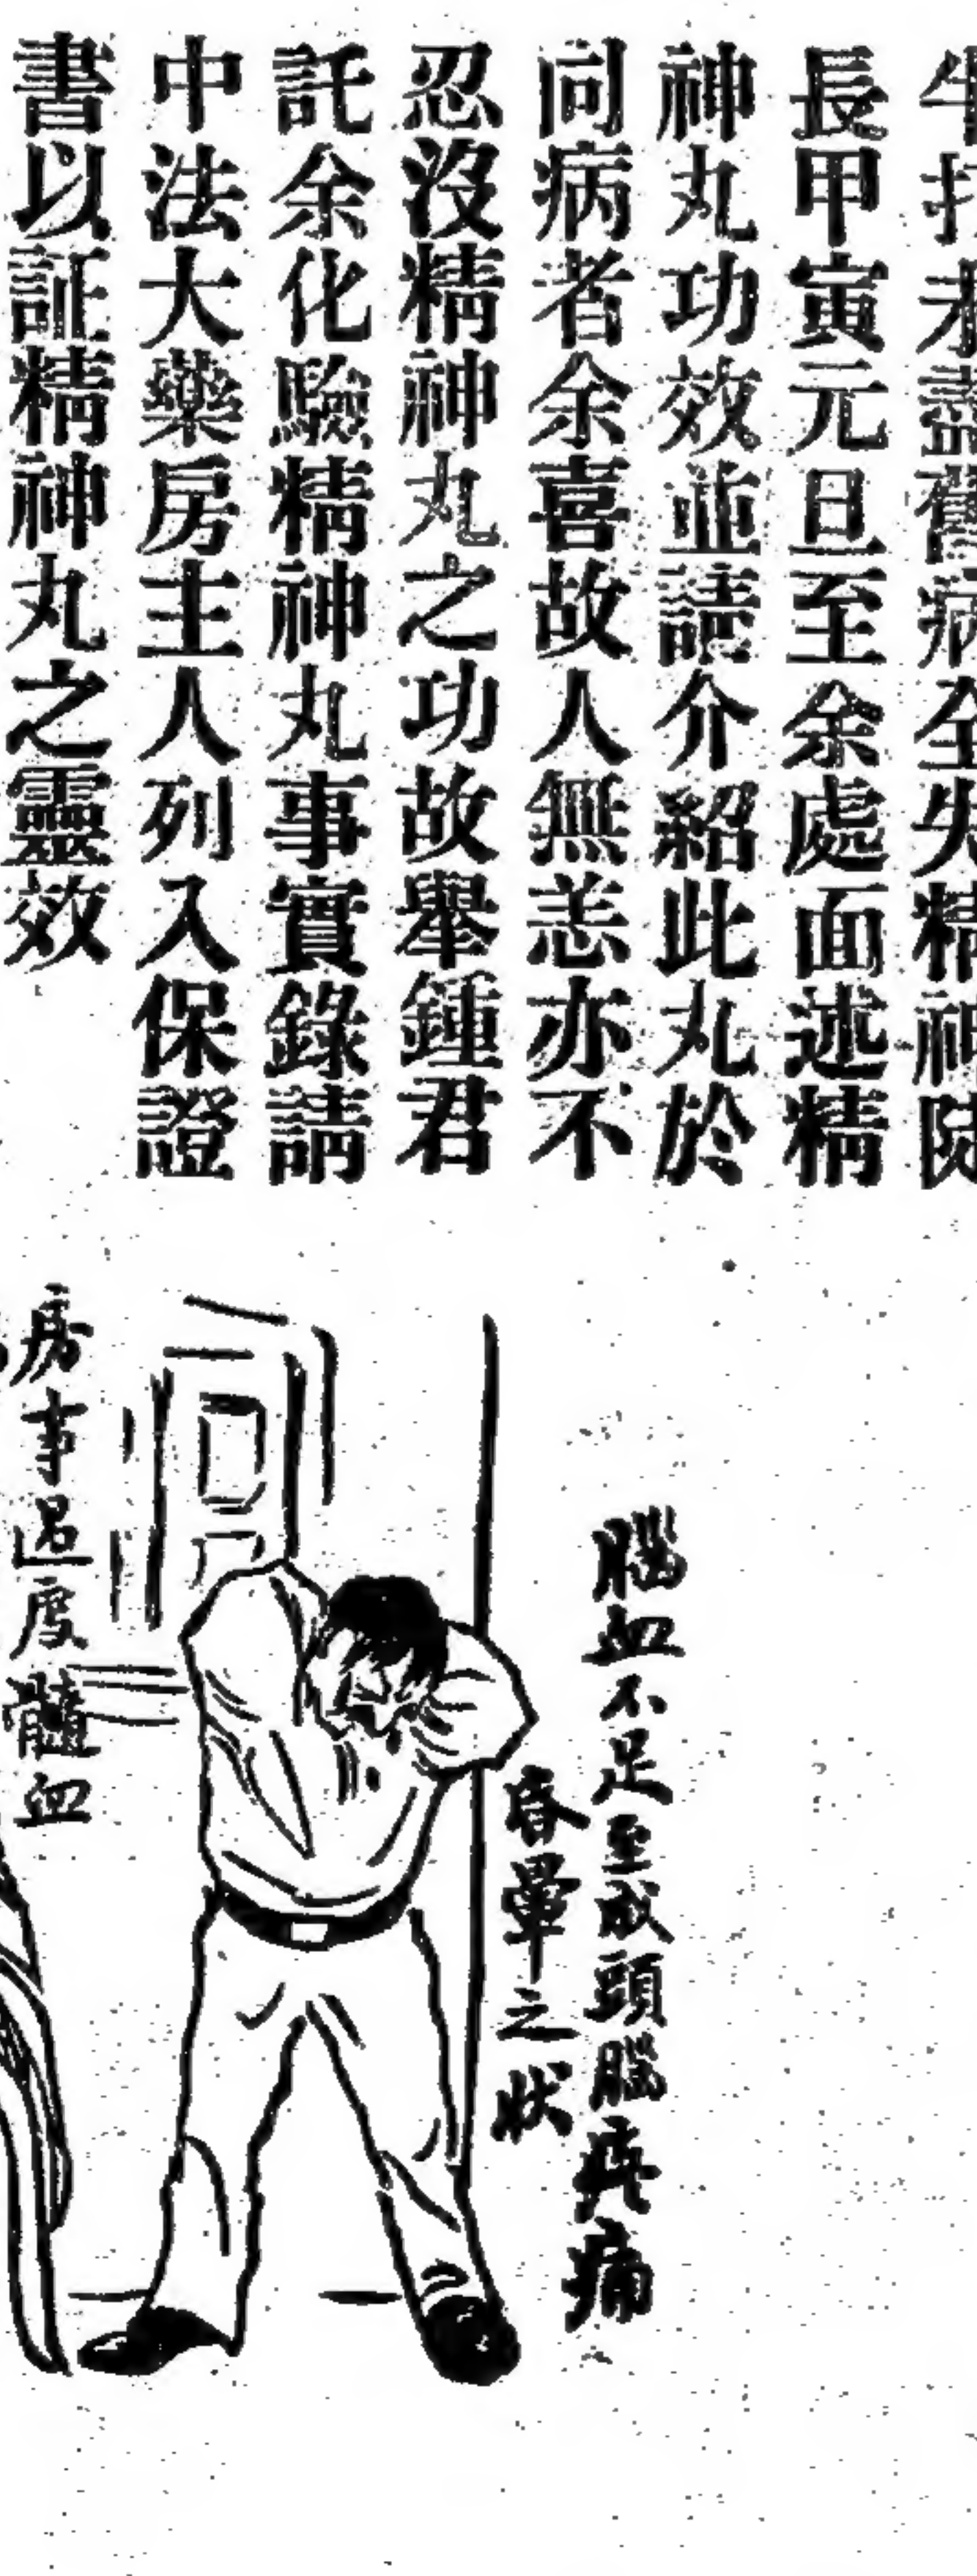 打未盡舊病全失精神院
長甲寅元旦至余處面述精
神丸功效並請介紹此丸於
同病者余喜故人無恙亦不
忍沒精神丸之功故舉鍾君
託余化驗精神丸事實錄請
中法大藥房主人列入保證
書以証精神丸之靈效
腦血不足至成頭腦疼痛
昏暈之狀
房事過度髓血